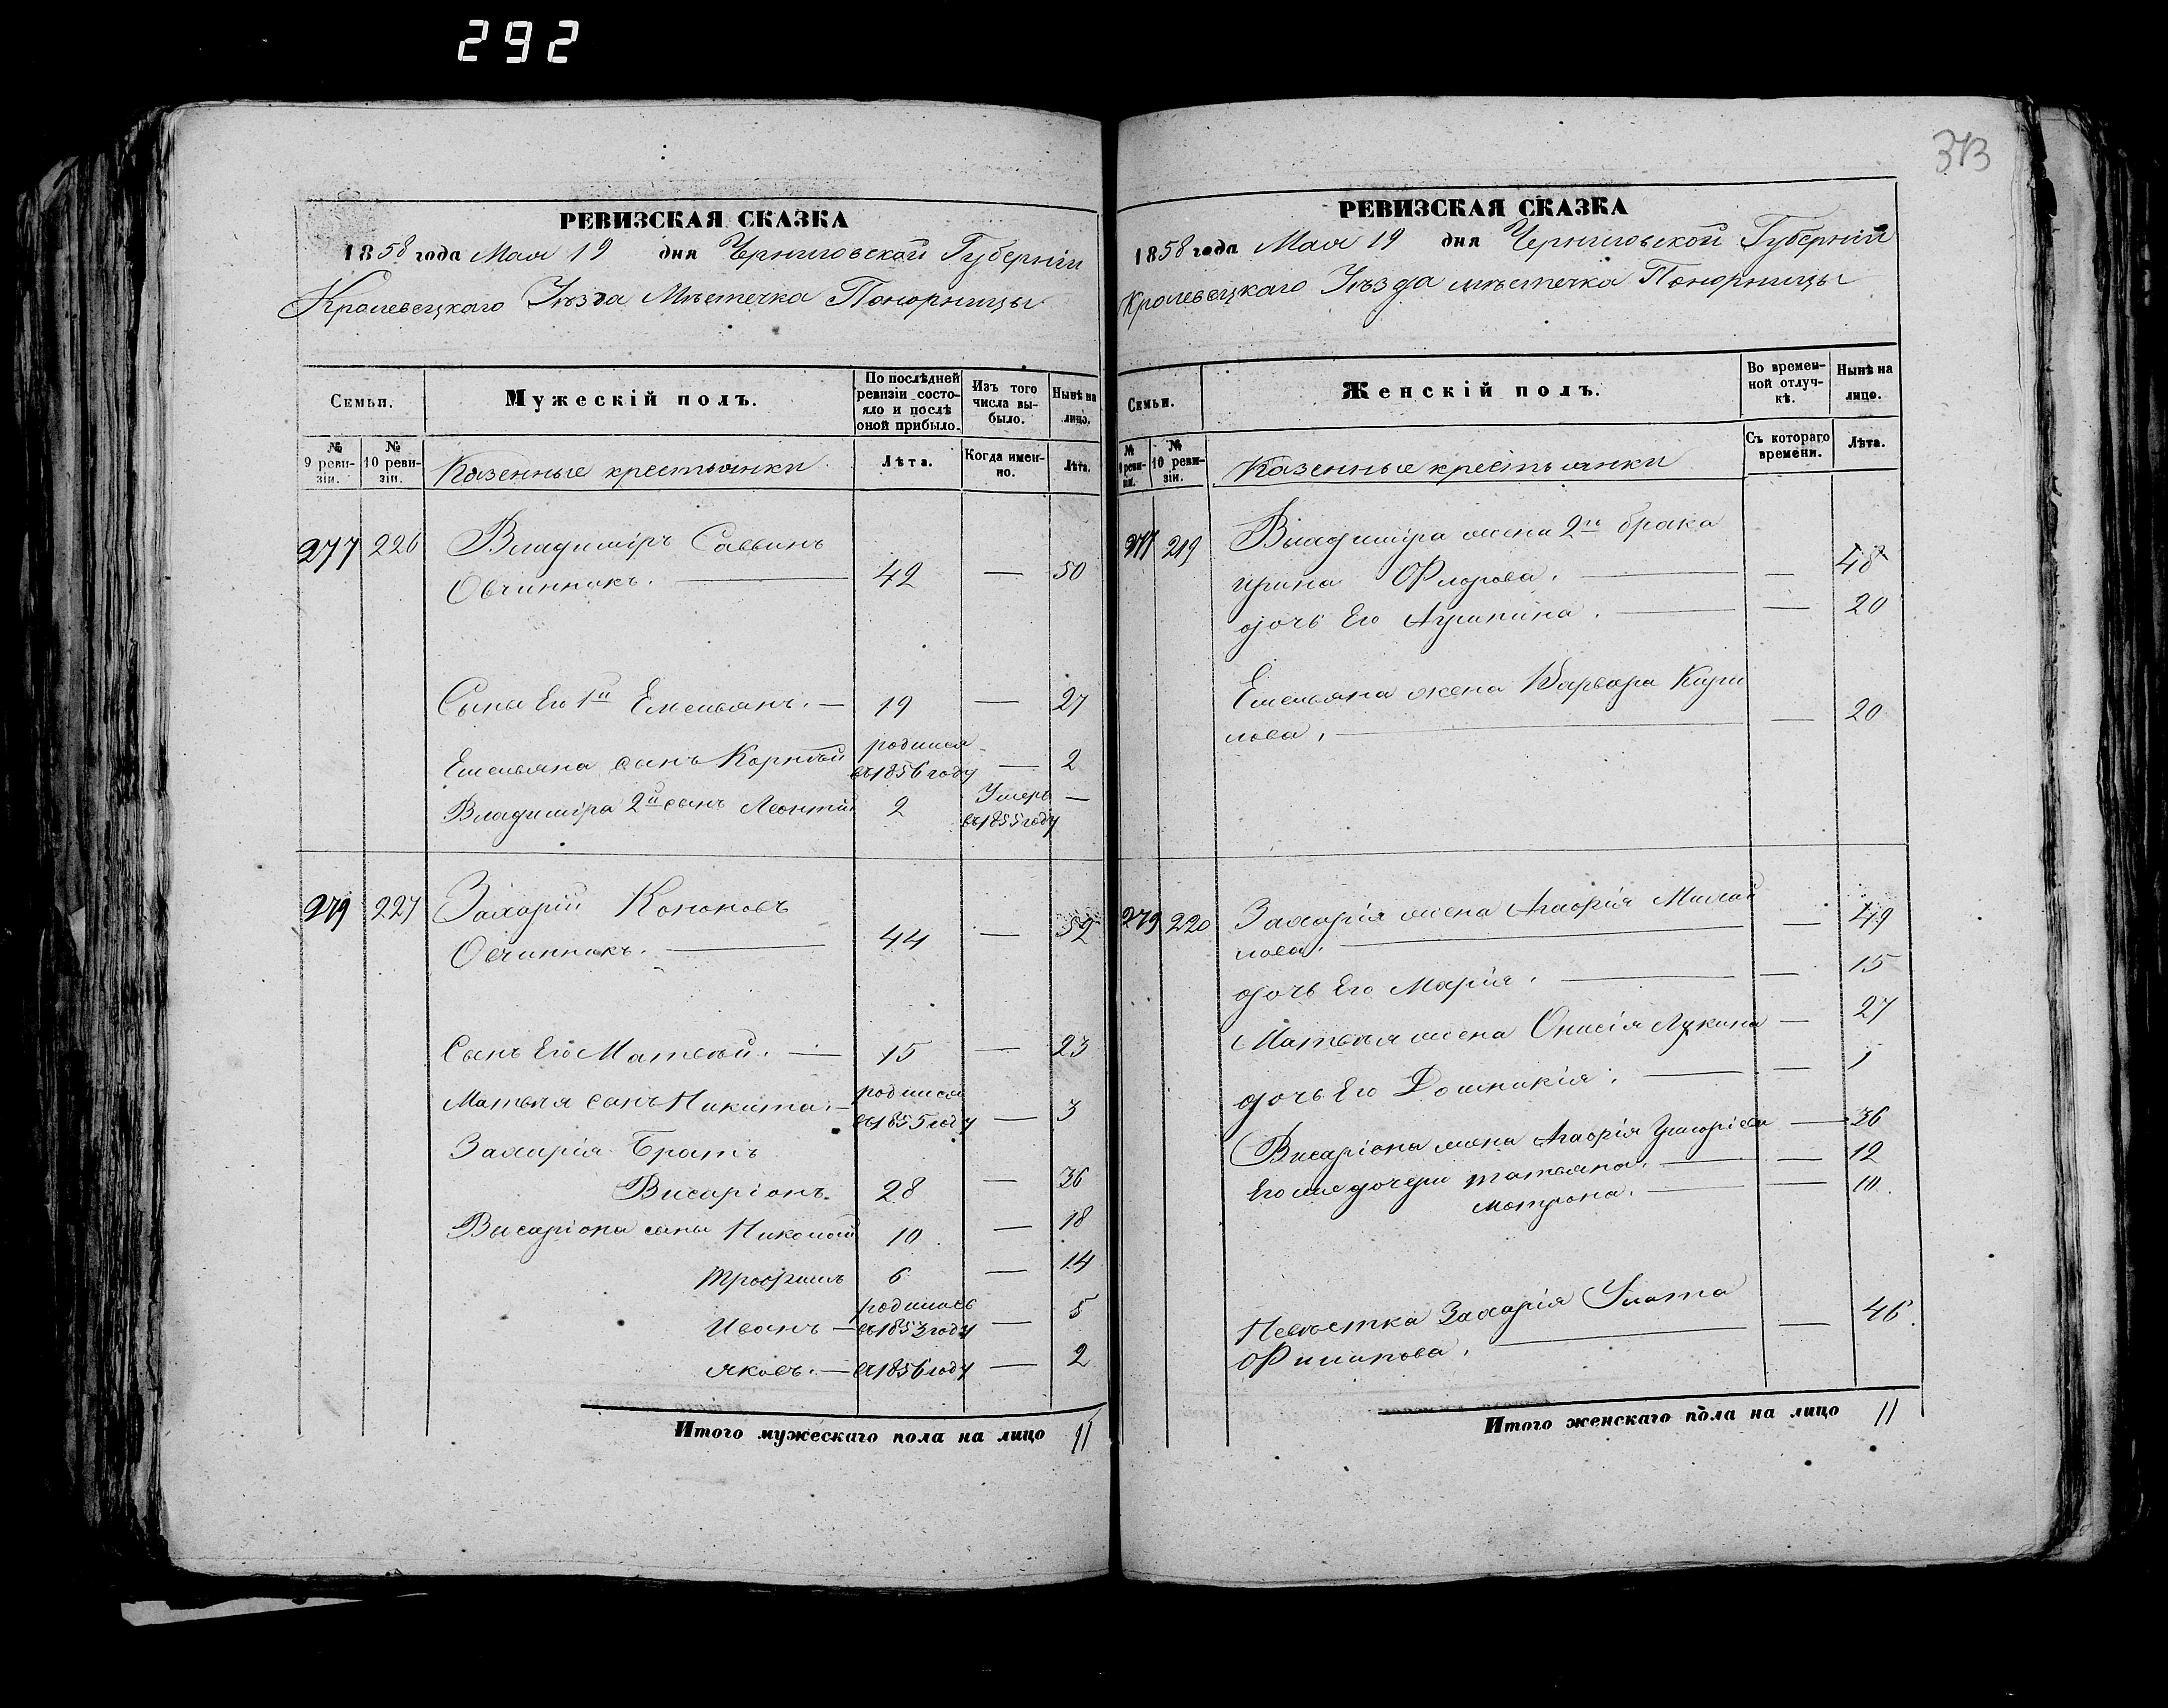 292
373
РЕВИЗСКАЯ СКАЗКА
1858 года Мая 19 дня Черниговской Губерніи
Кролевецкаго Уѣзда Мѣстечка Понорницы
Семьи.
Мужескій полъ.
По послѣдней ревизіи состояло и послѣ оной прибыло.
Изъ того числа выбыло.
Нынѣ на лицо.
№ 9 ревизіи.
№ 10 ревизіи.
Казенные крестьянки
Лѣта.
Когда именно.
Лѣта.
277 226 Владиміръ Саввинъ
Овчинникъ. — 42 — 50
Сынъ Его 1й Емельянъ. — 19 — 27
Емельяна сынъ Корнѣй родился въ 1856 году — 2
Владиміра 2й сынъ Леонтій 2 Умеръ въ 1855 году —
279 227 Захарій Кононовъ
Овчинникъ. — 44 — 52
Сынъ Его Матвѣй. — 15 — 23
Матвѣя сынъ Никита. — родился въ 1855 году — 3
Захарія Братъ
Висаріонъ. 28 — 36
Висаріона сыны Николай 10 — 18
Трофимъ 6 — 14
Иванъ — родились въ 1853 году — 5
Яковъ. — въ 1856 году — 2
Итого мужескаго пола на лицо 11
РЕВИЗСКАЯ СКАЗКА
1858 года Мая 19 дня Черниговской Губерніи
Кролевецкаго Уѣзда мѣстечка Понорницы
Семьи.
Женскій полъ.
Во временной отлучкѣ.
Нынѣ на лицо.
№ 9 ревизіи.
№ 10 ревизіи.
Казенные крестьянки
Съ котораго времени.
Лѣта.
277 219 Владиміра жена 2й брака
Ирина Флорова. — — 48
дочь Его Агрипина. — — 20
Емельяна жена Варвара Кири
лова. — — 20
279 220 Захарія жена Агафія Михай
лова. — — 49
дочь Его Марія. — — 15
Матвѣя жена Онисія Лукина — 27
дочь Его Домникія. — — 1
Висаріона жена Агафія Григоріева — 36
Его же дочери Татьяна. — — 12
Мотрона. — — 10.
Невѣстка Захарія Улита
Филипова. — — 46.
Итого женскаго пола на лицо 11